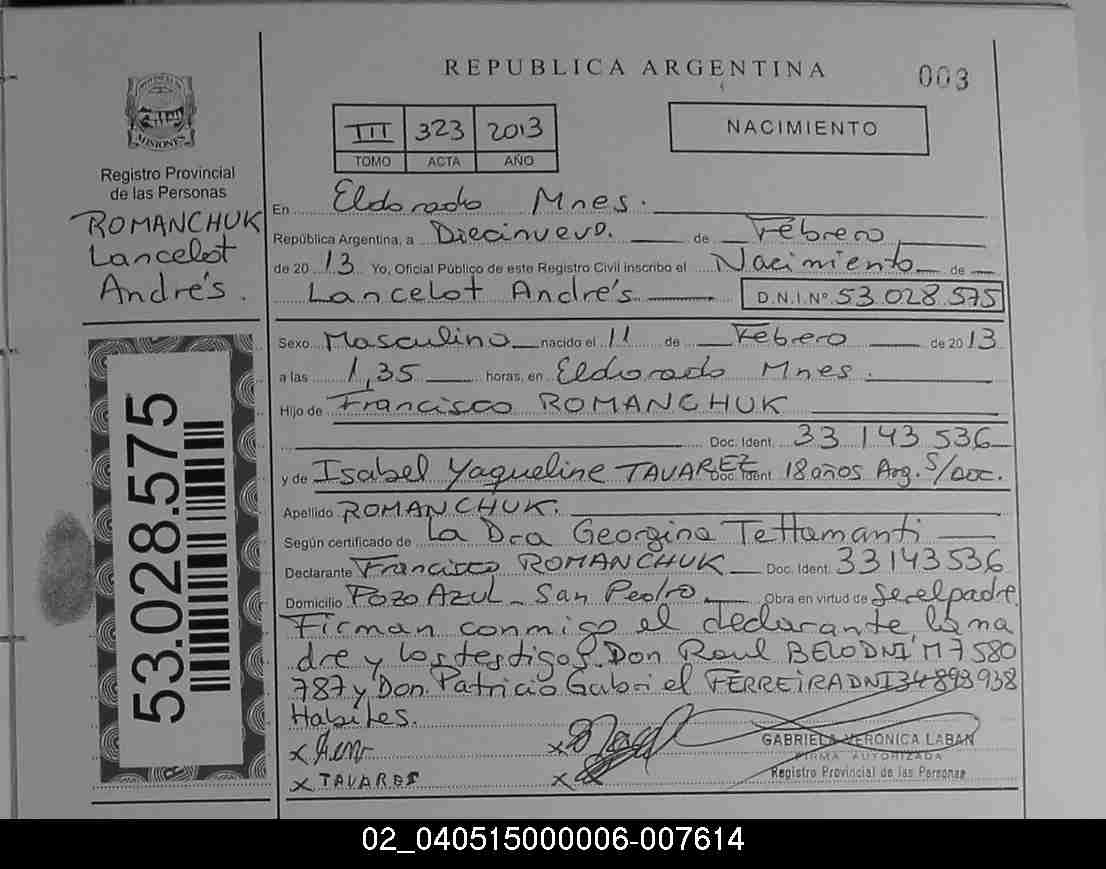 REPUBLICA ARGENTINA
003
PROVINCIA DE
MISIONES
Registro Provincial
de las Personas
ROMANCHUK
Lancelot
Andrés.
53.028.575
III 323 2013
TOMO ACTA AÑO
NACIMIENTO
En Eldorado Mnes.
República Argentina, a Diecinueve. de Febrero
de 2013 Yo, Oficial Público de este Registro Civil inscribo el Nacimiento de
Lancelot Andrés D.N.I.Nº 53.028.575
Sexo Masculino nacido el 11 de Febrero de 2013
a las 1,35 horas, en Eldorado Mnes.
Hijo de Francisco ROMANCHUK
Doc. Ident. 33 143 536
y de Isabel Yaqueline TAVAREZ Doc. Ident 18 años Arg. S/DOC.
Apellido ROMANCHUK.
Según certificado de La Dra Georgina Tettamanti
Declarante Francisco ROMANCHUK Doc. Ident. 33143536
Domicilio POZO AZUL - San Pedro Obra en virtud de ser el padre.
Firman conmigo el declarante, la ma
dre y los testigos. Don Raul BELO DNI M7580
787 y Don. Patricio Gabriel FERREIRA DNI 34898938
Habiles.
x
x TAVARES
x
x
GABRIELA VERONICA LABAN
FIRMA AUTORIZADA
Registro Provincial de las Personas
02_040515000006-007614